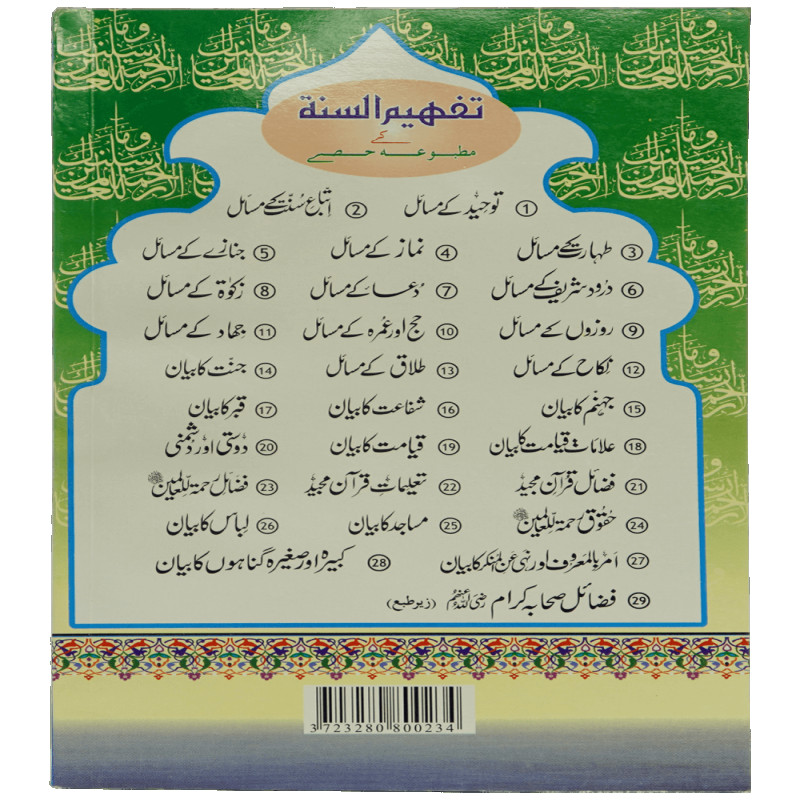 تفہیم السنۃ
کے
مطبوعہ حصے
① توحید کے مسائل ② اتباعِ سُنّت کے مسائل
③ طہارت کے مسائل ④ نماز کے مسائل ⑤ جنازے کے مسائل
⑥ درود شریف کے مسائل ⑦ دُعا کے مسائل ⑧ زکوٰۃ کے مسائل
⑨ روزوں کے مسائل ⑩ حج اور عُمرہ کے مسائل ⑪ جہاد کے مسائل
⑫ نکاح کے مسائل ⑬ طلاق کے مسائل ⑭ جنّت کا بیان
⑮ جہنّم کا بیان ⑯ شفاعت کا بیان ⑰ قبر کا بیان
⑱ علاماتِ قیامت کا بیان ⑲ قیامت کا بیان ⑳ دوستی اور دشمنی
㉑ فضائلِ قرآنِ مجید ㉒ تعلیماتِ قرآنِ مجید ㉓ فضائلِ رحمۃ للعالمین ﷺ
㉔ حقوقِ رحمۃ للعالمین ﷺ ㉕ مساجد کا بیان ㉖ لباس کا بیان
㉗ امر بالمعروف اور نہی عن المنکر کا بیان ㉘ کبیرہ اور صغیرہ گناہوں کا بیان
㉙ فضائل صحابہ کرام رضی اللہ عنہم (زیر طبع)
3723280800234